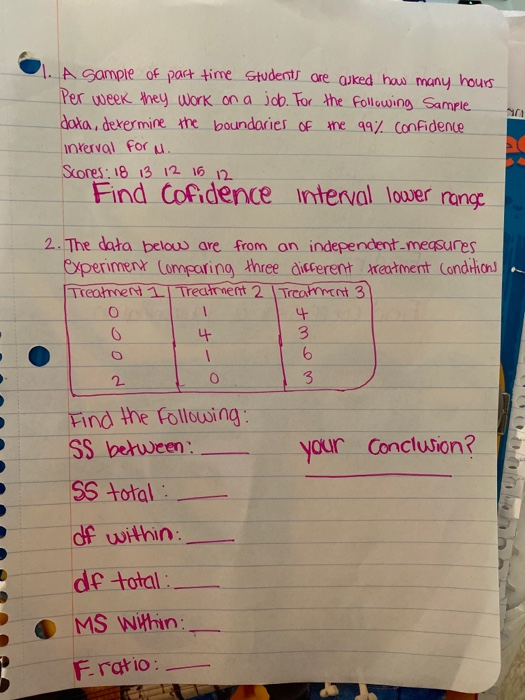 1. A sample of part time students are asked how many hours
Per week they work on a job. For the following sample
data, determine the boundaries of the 99% confidence
interval for μ.
Scores: 18 13 12 15 12
Find Cofidence interval lower range
2. The data below are from an independent-measures
experiment comparing three different treatment conditions
Treatment 1 Treatment 2 Treatment 3
0 1 4
0 4 3
0 1 6
2 0 3
Find the following:
SS between:
your conclusion?
SS total:
df within:
df total:
MS within:
F-ratio: